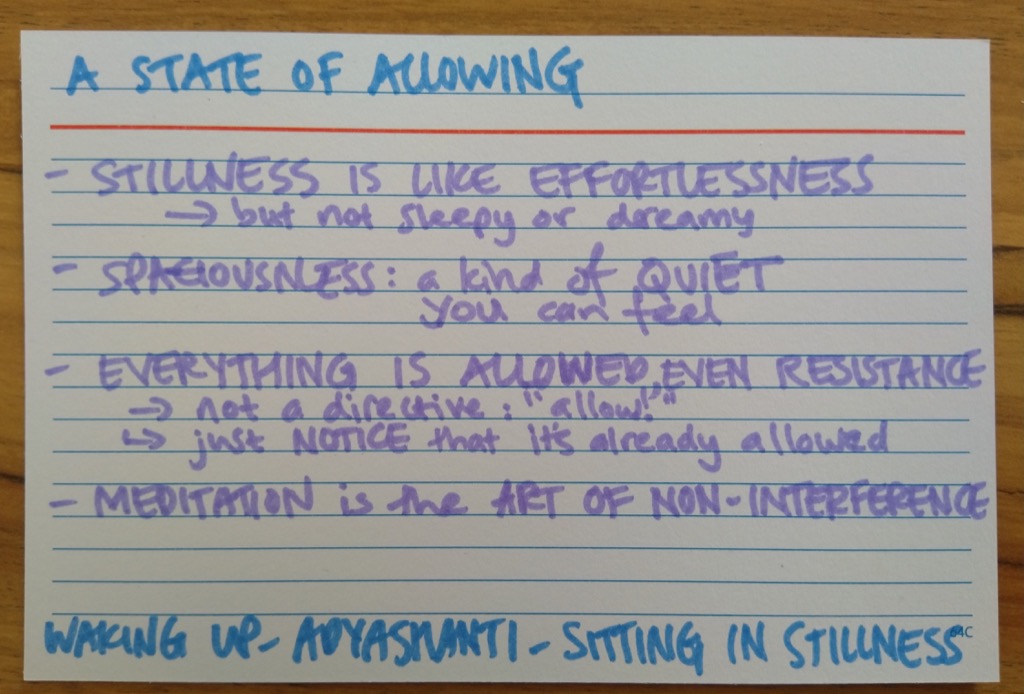 A STATE OF ALLOWING
- STILLNESS IS LIKE EFFORTLESSNESS
→ but not sleepy or dreamy
- SPACIOUSNESS: a kind of QUIET
you can feel
- EVERYTHING IS ALLOWED, EVEN RESISTANCE
→ not a directive: "allow!"
↳ just NOTICE that it's already allowed
- MEDITATION is the ART OF NON-INTERFERENCE
WAKING UP - ADYASHANTI - SITTING IN STILLNESS